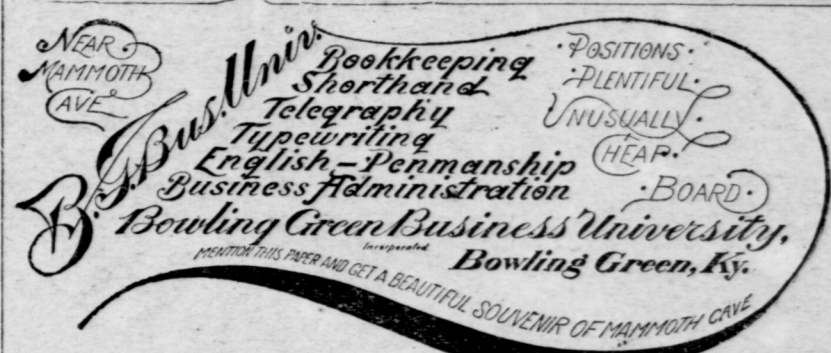 NEAR
MAMMOTH
CAVE
B. G. Bus. Univ.
Bookkeeping
Shorthand
Telegraphy
Typewriting
English – Penmanship
Business Administration
· POSITIONS ·
· PLENTIFUL ·
UNUSUALLY ·
CHEAP ·
· BOARD ·
Bowling Green Business University,
Incorporated
Bowling Green, Ky.
MENTION THIS PAPER AND GET A BEAUTIFUL SOUVENIR OF MAMMOTH CAVE